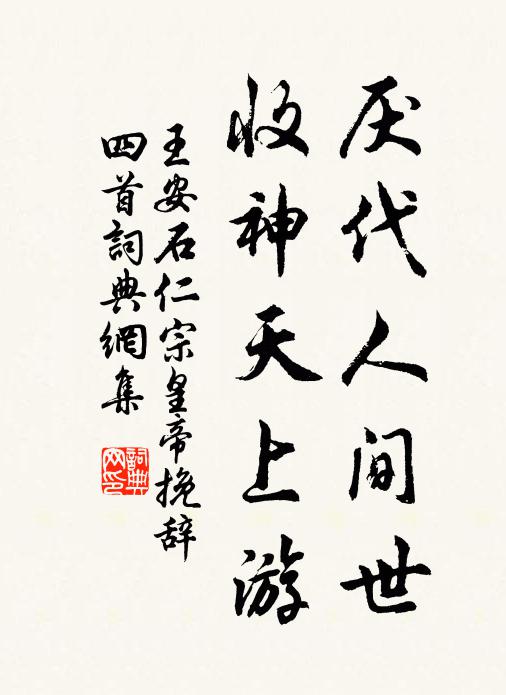 厌代人间世
收神天上游
王安石仁宗皇帝挽辞
四首詞典網集
詞典
网印